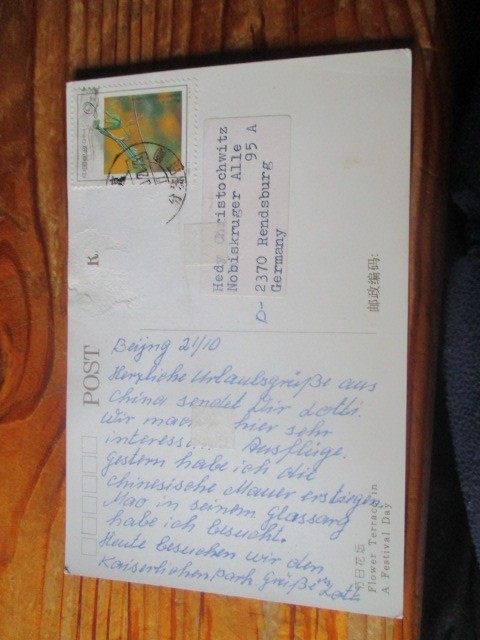 POST
Beijng 21/10
Herzliche Urlaubsgrüße aus
China sendet Dir Lotti.
Wir hier sehr
Ausflüge.
gestern habe ich die
chinesische Mauer erstiegen.
Mao in seinem glassarg
habe ich besucht.
Heute besuchen wir den
Kaiserlichen park grüße Lotti
Hedy
Nobiskruger Alle
95 A
D- 2370 Rendsburg
Germany
邮政编码:
日花坛
Flower Terrace in
A Festival Day